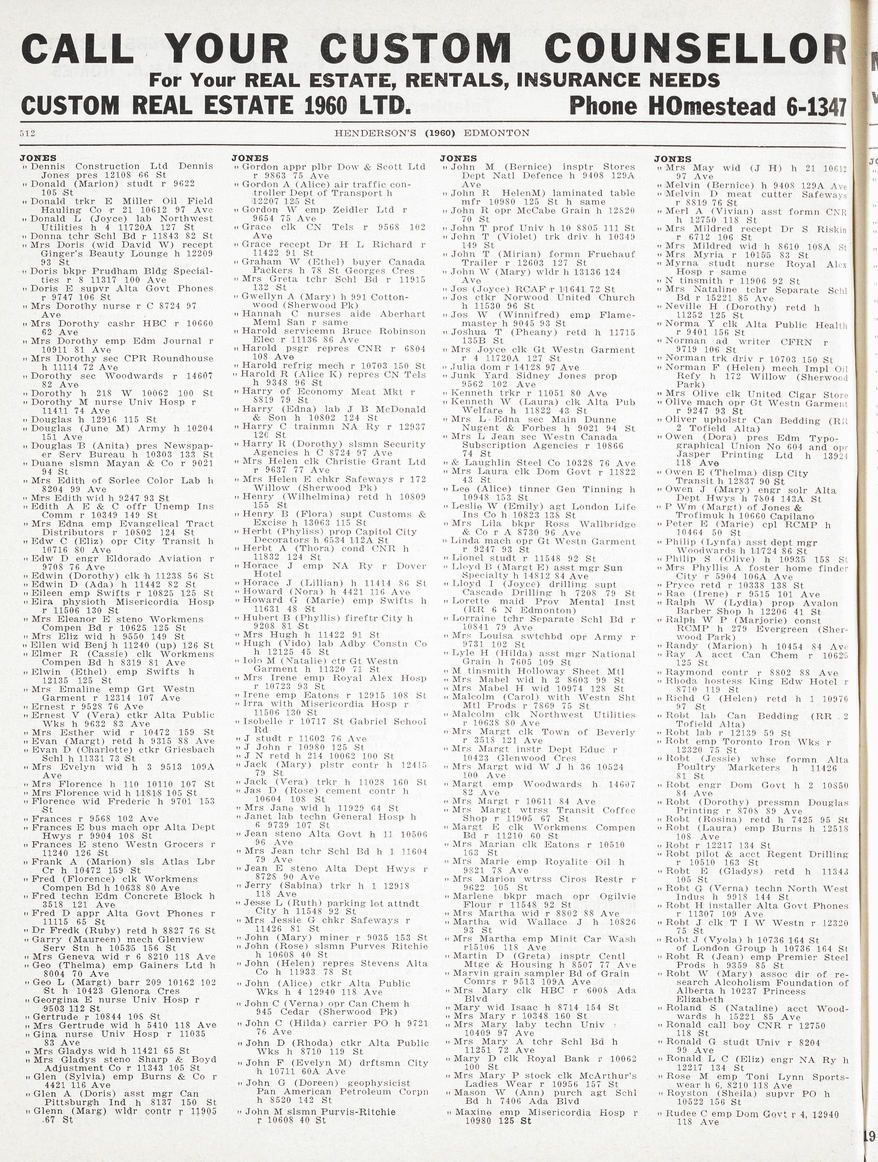 CALL YOUR CUSTOM COUNSELLOR
For Your REAL ESTATE, RENTALS, INSURANCE NEEDS
CUSTOM REAL ESTATE 1960 LTD. Phone HOmestead 6-1347
512 HENDERSON'S (1960) EDMONTON
JONES
" Dennis Construction Ltd Dennis
Jones pres 12108 66 St
" Donald (Marion) studt r 9622
105 St
" Donald trkr E Miller Oil Field
Hauling Co r 21 10612 97 Ave
" Donald L (Joyce) lab Northwest
Utilities h 4 11720A 127 St
" Donna tchr Schl Bd r 11843 82 St
" Mrs Doris (wid David W) recept
Ginger's Beauty Lounge h 12209
93 St
" Doris bkpr Prudham Bldg Special-
ties r 8 11317 100 Ave
" Doris E supvr Alta Govt Phones
r 9747 106 St
" Mrs Dorothy nurse r C 8724 97
Ave
" Mrs Dorothy cashr HBC r 10660
62 Ave
" Mrs Dorothy emp Edm Journal r
10911 81 Ave
" Mrs Dorothy sec CPR Roundhouse
h 11114 72 Ave
" Dorothy sec Woodwards r 14607
82 Ave
" Dorothy h 218 W 10062 100 St
" Dorothy M nurse Univ Hosp r
11411 74 Ave
" Douglas h 12916 115 St
" Douglas (June M) Army h 10204
151 Ave
" Douglas B (Anita) pres Newspap-
er Serv Bureau h 10303 133 St
" Duane slsmn Mayan & Co r 9021
94 St
" Mrs Edith of Sorlee Color Lab h
8204 99 Ave
" Mrs Edith wid h 9247 93 St
" Edith A E & C offr Unemp Ins
Comm r 10349 149 St
" Mrs Edna emp Evangelical Tract
Distributors r 10802 124 St
" Edw C (Eliz) opr City Transit h
10716 80 Ave
" Edw D engr Eldorado Aviation r
9708 76 Ave
" Edwin (Dorothy) clk h 11238 56 St
" Edwin D (Ada) h 11442 82 St
" Eileen emp Swifts r 10825 125 St
" Eira physioth Misericordia Hosp
r 11506 130 St
" Mrs Eleanor E steno Workmens
Compen Bd r 10625 125 St
" Mrs Eliz wid h 9550 149 St
" Ellen wid Benj h 11240 (up) 126 St
" Elmer R (Cassie) clk Workmens
Compen Bd h 8319 81 Ave
" Elwin (Ethel) emp Swifts h
12135 125 St
" Mrs Emaline emp Grt Westn
Garment r 12314 107 Ave
" Ernest r 9528 76 Ave
" Ernest V (Vera) ctkr Alta Public
Wks h 9632 83 Ave
" Mrs Esther wid r 10472 159 St
" Evan (Margt) retd h 9315 88 Ave
" Evan D (Charlotte) ctkr Griesbach
Schl h 11331 73 St
" Mrs Evelyn wid h 3 9513 109A
Ave
" Mrs Florence h 110 10110 107 St
" Mrs Florence wid h 11818 105 St
" Florence wid Frederic h 9701 153
St
" Frances r 9568 102 Ave
" Frances E bus mach opr Alta Dept
Hwys r 9904 108 St
" Frances E steno Westn Grocers r
11240 126 St
" Frank A (Marion) sls Atlas Lbr
Cr h 10472 159 St
" Fred (Florence) clk Workmens
Compen Bd h 10638 80 Ave
" Fred techn Edm Concrete Block h
3518 121 Ave
" Fred D appr Alta Govt Phones r
11115 65 St
" Dr Fredk (Ruby) retd h 8827 76 St
" Garry (Maureen) mech Glenview
Serv Stn h 10535 156 St
" Mrs Geneva wid r 6 8210 118 Ave
" Geo (Thelma) emp Gainers Ltd h
8004 70 Ave
" Geo L (Margt) barr 209 10162 102
St h 10423 Glenora Cres
" Georgina E nurse Univ Hosp r
9503 112 St
" Gertrude r 10844 108 St
" Mrs Gertrude wid h 5410 118 Ave
" Gina nurse Univ Hosp r 11035
83 Ave
" Mrs Gladys wid h 11421 65 St
" Mrs Gladys steno Sharp & Boyd
Adjustment Co r 11343 105 St
" Glen (Sylvia) emp Burns & Co r
4421 116 Ave
" Glen A (Doris) asst mgr Can
Pittsburgh Ind h 8137 150 St
" Glenn (Marg) wldr contr r 11905
67 St
JONES
" Gordon appr plbr Dow & Scott Ltd
r 9863 75 Ave
" Gordon A (Alice) air traffic con-
troller Dept of Transport h
12207 125 St
" Gordon W emp Zeidler Ltd r
9654 75 Ave
" Grace clk CN Tels r 9568 102
Ave
" Grace recept Dr H L Richard r
11422 91 St
" Graham W (Ethel) buyer Canada
Packers h 78 St Georges Cres
" Mrs Greta tchr Schl Bd r 11915
132 St
" Gwellyn A (Mary) h 991 Cotton-
wood (Sherwood Pk)
" Hannah C nurses aide Aberhart
Meml San r same
" Harold servicemn Bruce Robinson
Elec r 11136 86 Ave
" Harold psgr repres CNR r 6804
108 Ave
" Harold refrig mech r 10703 150 St
" Harold R (Alice K) repres CN Tels
h 9348 96 St
" Harry of Economy Meat Mkt r
8819 76 St
" Harry (Edna) lab J B McDonald
& Son h 10802 124 St
" Harry C trainmn NA Ry r 12937
126 St
" Harry R (Dorothy) slsmn Security
Agencies h C 8724 97 Ave
" Mrs Helen clk Christie Grant Ltd
r 9637 77 Ave
" Mrs Helen E chkr Safeways r 172
Willow (Sherwood Pk)
" Henry (Wilhelmina) retd h 10809
155 St
" Henry B (Flora) supt Customs &
Excise h 13063 115 St
" Herbt (Phyliss) prop Capitol City
Decorators h 6534 112A St
" Herbt A (Thora) cond CNR h
11832 124 St
" Horace J emp NA Ry r Dover
Hotel
" Horace J (Lillian) h 11414 86 St
" Howard (Nora) h 4421 116 Ave
" Howard G (Marie) emp Swifts h
11631 48 St
" Hubert B (Phyllis) fireftr City h
9208 81 St
" Mrs Hugh h 11422 91 St
" Hugh (Vido) lab Adby Constn Co
h 12125 45 St
" Iolo M (Natalie) ctr Gt Westn
Garment h 11320 71 St
" Mrs Irene emp Royal Alex Hosp
r 10723 93 St
" Irene emp Eatons r 12915 108 St
" Irra with Misericordia Hosp r
11506 130 St
" Isobelle r 10717 St Gabriel School
Rd
" J studt r 11602 76 Ave
" J John r 10980 125 St
" J N retd h 214 10062 100 St
" Jack (Mary) plstr contr h 12415
79 St
" Jack (Vera) trkr h 11028 160 St
" Jas D (Rose) cement contr h
10604 108 St
" Mrs Jane wid h 11929 64 St
" Janet lab techn General Hosp h
6 9739 107 St
" Jean steno Alta Govt h 11 10506
96 Ave
" Mrs Jean tchr Schl Bd h 1 11604
79 Ave
" Jean E steno Alta Dept Hwys r
8728 90 Ave
" Jerry (Sabina) trkr h 1 12918
118 Ave
" Jesse L (Ruth) parking lot attndt
City h 11548 92 St
" Mrs Jessie G chkr Safeways r
11426 81 St
" John (Mary) miner r 9035 153 St
" John (Rose) slsmn Purves Ritchie
h 10608 40 St
" John (Helen) repres Stevens Alta
Co h 11933 78 St
" John (Alice) ctkr Alta Public
Wks h 4 12940 118 Ave
" John C (Verna) opr Can Chem h
945 Cedar (Sherwood Pk)
" John C (Hilda) carrier PO h 9721
76 Ave
" John D (Rhoda) ctkr Alta Public
Wks h 8710 119 St
" John F (Evelyn M) drftsmn City
h 10711 60A Ave
" John G (Doreen) geophysicist
Pan American Petroleum Corpn
h 8520 142 St
" John M slsmn Purvis-Ritchie
r 10608 40 St
JONES
" John M (Bernice) insptr Stores
Dept Natl Defence h 9408 129A
Ave
" John R HelenM) laminated table
mfr 10980 125 St h same
" John R opr McCabe Grain h 12820
70 St
" John T prof Univ h 10 8805 111 St
" John T (Violet) trk driv h 10349
149 St
" John T (Mirian) formn Fruehauf
Trailer r 12603 127 St
" John W (Mary) wldr h 13136 124
Ave
" Jos (Joyce) RCAF r 11641 72 St
" Jos ctkr Norwood United Church
h 11530 96 St
" Jos W (Winnifred) emp Flame-
master h 9045 93 St
" Joshua T (Pheany) retd h 11715
135B St
" Mrs Joyce clk Gt Westn Garment
r 4 11720A 127 St
" Julia dom r 14128 97 Ave
" Junk Yard Sidney Jones prop
9562 102 Ave
" Kenneth trkr r 11051 80 Ave
" Kenneth W (Laura) clk Alta Pub
Welfare h 11822 43 St
" Mrs L Edna sec Main Dunne
Nugent & Forbes h 9021 94 St
" Mrs L Jean sec Westn Canada
Subscription Agencies r 10866
74 St
" & Laughlin Steel Co 10328 76 Ave
" Mrs Laura clk Dom Govt r 11822
43 St
" Lee (Alice) tinner Gen Tinning h
10948 153 St
" Leslie W (Emily) agt London Life
Ins Co h 10823 138 St
" Mrs Lila bkpr Ross Wallbridge
& Co r A 8730 96 Ave
" Linda mach opr Gt Westn Garment
r 9247 93 St
" Lionel studt r 11548 92 St
" Lloyd B (Margt E) asst mgr Sun
Specialty h 14812 84 Ave
" Lloyd I (Joyce) drilling supt
Cascade Drilling h 7208 79 St
" Lorette maid Prov Mental Inst
(RR 6 N Edmonton)
" Lorraine tchr Separate Schl Bd r
10841 79 Ave
" Mrs Louisa swtchbd opr Army r
9731 102 St
" Lyle H (Hilda) asst mgr National
Grain h 7605 109 St
" M tinsmith Holloway Sheet Mtl
" Mrs Mabel wid h 2 8603 99 St
" Mrs Mabel H wid 10974 128 St
" Malcolm (Carol) with Westn Sht
Mtl Prods r 7869 75 St
" Malcolm clk Northwest Utilities
r 10638 80 Ave
" Mrs Margt clk Town of Beverly
r 3518 121 Ave
" Mrs Margt instr Dept Educ r
10423 Glenwood Cres
" Mrs Margt wid W J h 36 10524
100 Ave
" Margt emp Woodwards h 14607
82 Ave
" Mrs Margt r 10611 84 Ave
" Mrs Margt wtrss Transit Coffee
Shop r 11905 67 St
" Margt E clk Workmens Compen
Bd r 11210 60 St
" Mrs Marian clk Eatons r 10510
163 St
" Mrs Marie emp Royalite Oil h
9821 78 Ave
" Mrs Marion wtrss Ciros Restr r
9622 105 St
" Marlene bkpr mach opr Ogilvie
Flour r 11548 92 St
" Mrs Martha wid r 8802 88 Ave
" Martha wid Wallace J h 10826
93 St
" Mrs Martha emp Minit Car Wash
r15106 118 Ave
" Martin D (Greta) insptr Centl
Mtge & Housing h 8507 77 Ave
" Marvin grain sampler Bd of Grain
Comrs r 9513 109A Ave
" Mrs Mary clk HBC r 6008 Ada
Blvd
" Mary wid Isaac h 8714 154 St
" Mrs Mary r 10348 160 St
" Mrs Mary laby techn Univ
10409 97 Ave
" Mrs Mary A tchr Schl Bd h
11251 72 Ave
" Mary D clk Royal Bank r 10062
100 St
" Mrs Mary P stock clk McArthur's
Ladies Wear r 10956 157 St
" Mason W (Ann) purch agt Schl
Bd h 7406 Ada Blvd
" Maxine emp Misericordia Hosp r
10980 125 St
JONES
" Mrs May wid (J H) h 21 10612
97 Ave
" Melvin (Bernice) h 9408 129A Ave
" Melvin D meat cutter Safeways
r 8819 76 St
" Merl A (Vivian) asst formn CNR
h 12750 118 St
" Mrs Mildred recept Dr S Riskin
r 6712 106 St
" Mrs Mildred wid h 8610 108A St
" Mrs Myria r 10155 83 St
" Myrna studt nurse Royal Alex
Hosp r same
" N tinsmith r 11906 92 St
" Mrs Nataline tchr Separate Schl
Bd r 15221 85 Ave
" Neville H (Dorothy) retd h
11252 125 St
" Norma Y clk Alta Public Health
r 9401 156 St
" Norman ad writer CFRN r
9719 106 St
" Norman trk driv r 10703 150 St
" Norman F (Helen) mech Impl Oil
Refy h 172 Willow (Sherwood
Park)
" Mrs Olive clk United Cigar Store
" Olive mach opr Gt Westn Garment
r 9247 93 St
" Oliver upholstr Can Bedding (RR
2 Tofield Alta)
" Owen (Dora) pres Edm Typo-
graphical Union No 604 and opr
Jasper Printing Ltd h 13924
118 Ave
" Owen E (Thelma) disp City
Transit h 12837 90 St
" Owen J (Mary) engr solr Alta
Dept Hwys h 7804 143A St
" P Wm (Margt) of Jones &
Trofimuk h 10660 Capilano
" Peter E (Marie) cpl RCMP h
10464 50 St
" Philip (Lynfa) asst dept mgr
Woodwards h 11724 86 St
" Philip S (Olive) h 10935 158 St
" Mrs Phyllis A foster home finder
City r 5904 106A Ave
" Pryce retd r 10338 138 St
" Rae (Irene) r 9515 101 Ave
" Ralph W (Lydia) prop Avalon
Barber Shop h 12206 41 St
" Ralph W P (Marjorie) const
RCMP h 279 Evergreen (Sher-
wood Park)
" Randy (Marion) h 10454 84 Ave
" Ray A acct Can Chem r 10625
125 St
" Raymond contr r 8802 88 Ave
" Rhoda hostess King Edw Hotel r
8710 119 St
" Richd G (Helen) retd h 1 10976
97 St
" Robt lab Can Bedding (RR 2
Tofield Alta)
" Robt lab r 12139 59 St
" Robt emp Toronto Iron Wks r
12320 75 St
" Robt (Jessie) whse formn Alta
Poultry Marketers h 11426
81 St
" Robt engr Dom Govt h 2 10850
84 Ave
" Robt (Dorothy) pressmn Douglas
Printing r 8708 89 Ave
" Robt (Rosina) retd h 7425 95 St
" Robt (Laura) emp Burns h 12518
108 Ave
" Robt r 12217 134 St
" Robt pilot & acct Regent Drilling
r 10510 163 St
" Robt E (Gladys) retd h 11343
105 St
" Robt G (Verna) techn North West
Indus h 9918 144 St
" Robt H installer Alta Govt Phones
r 11307 109 Ave
" Robt J clk T I W Westn r 12320
75 St
" Robt J (Vyola) h 10736 164 St
of London Group h 10736 164 St
" Robt R (Jean) emp Premier Steel
Prods h 9359 85 St
" Robt W (Mary) assoc dir of re-
search Alcoholism Foundation of
Alberta h 10237 Princess
Elizabeth
" Roland S (Nataline) acct Wood-
wards h 15221 85 Ave
" Ronald call boy CNR r 12750
118 St
" Ronald G studt Univ r 8204
99 Ave
" Ronald L C (Eliz) engr NA Ry h
12217 134 St
" Rose M emp Toni Lynn Sports-
wear h 6, 8210 118 Ave
" Royston (Sheila) supvr PO h
10522 156 St
" Rudee C emp Dom Govt r 4, 12940
118 Ave